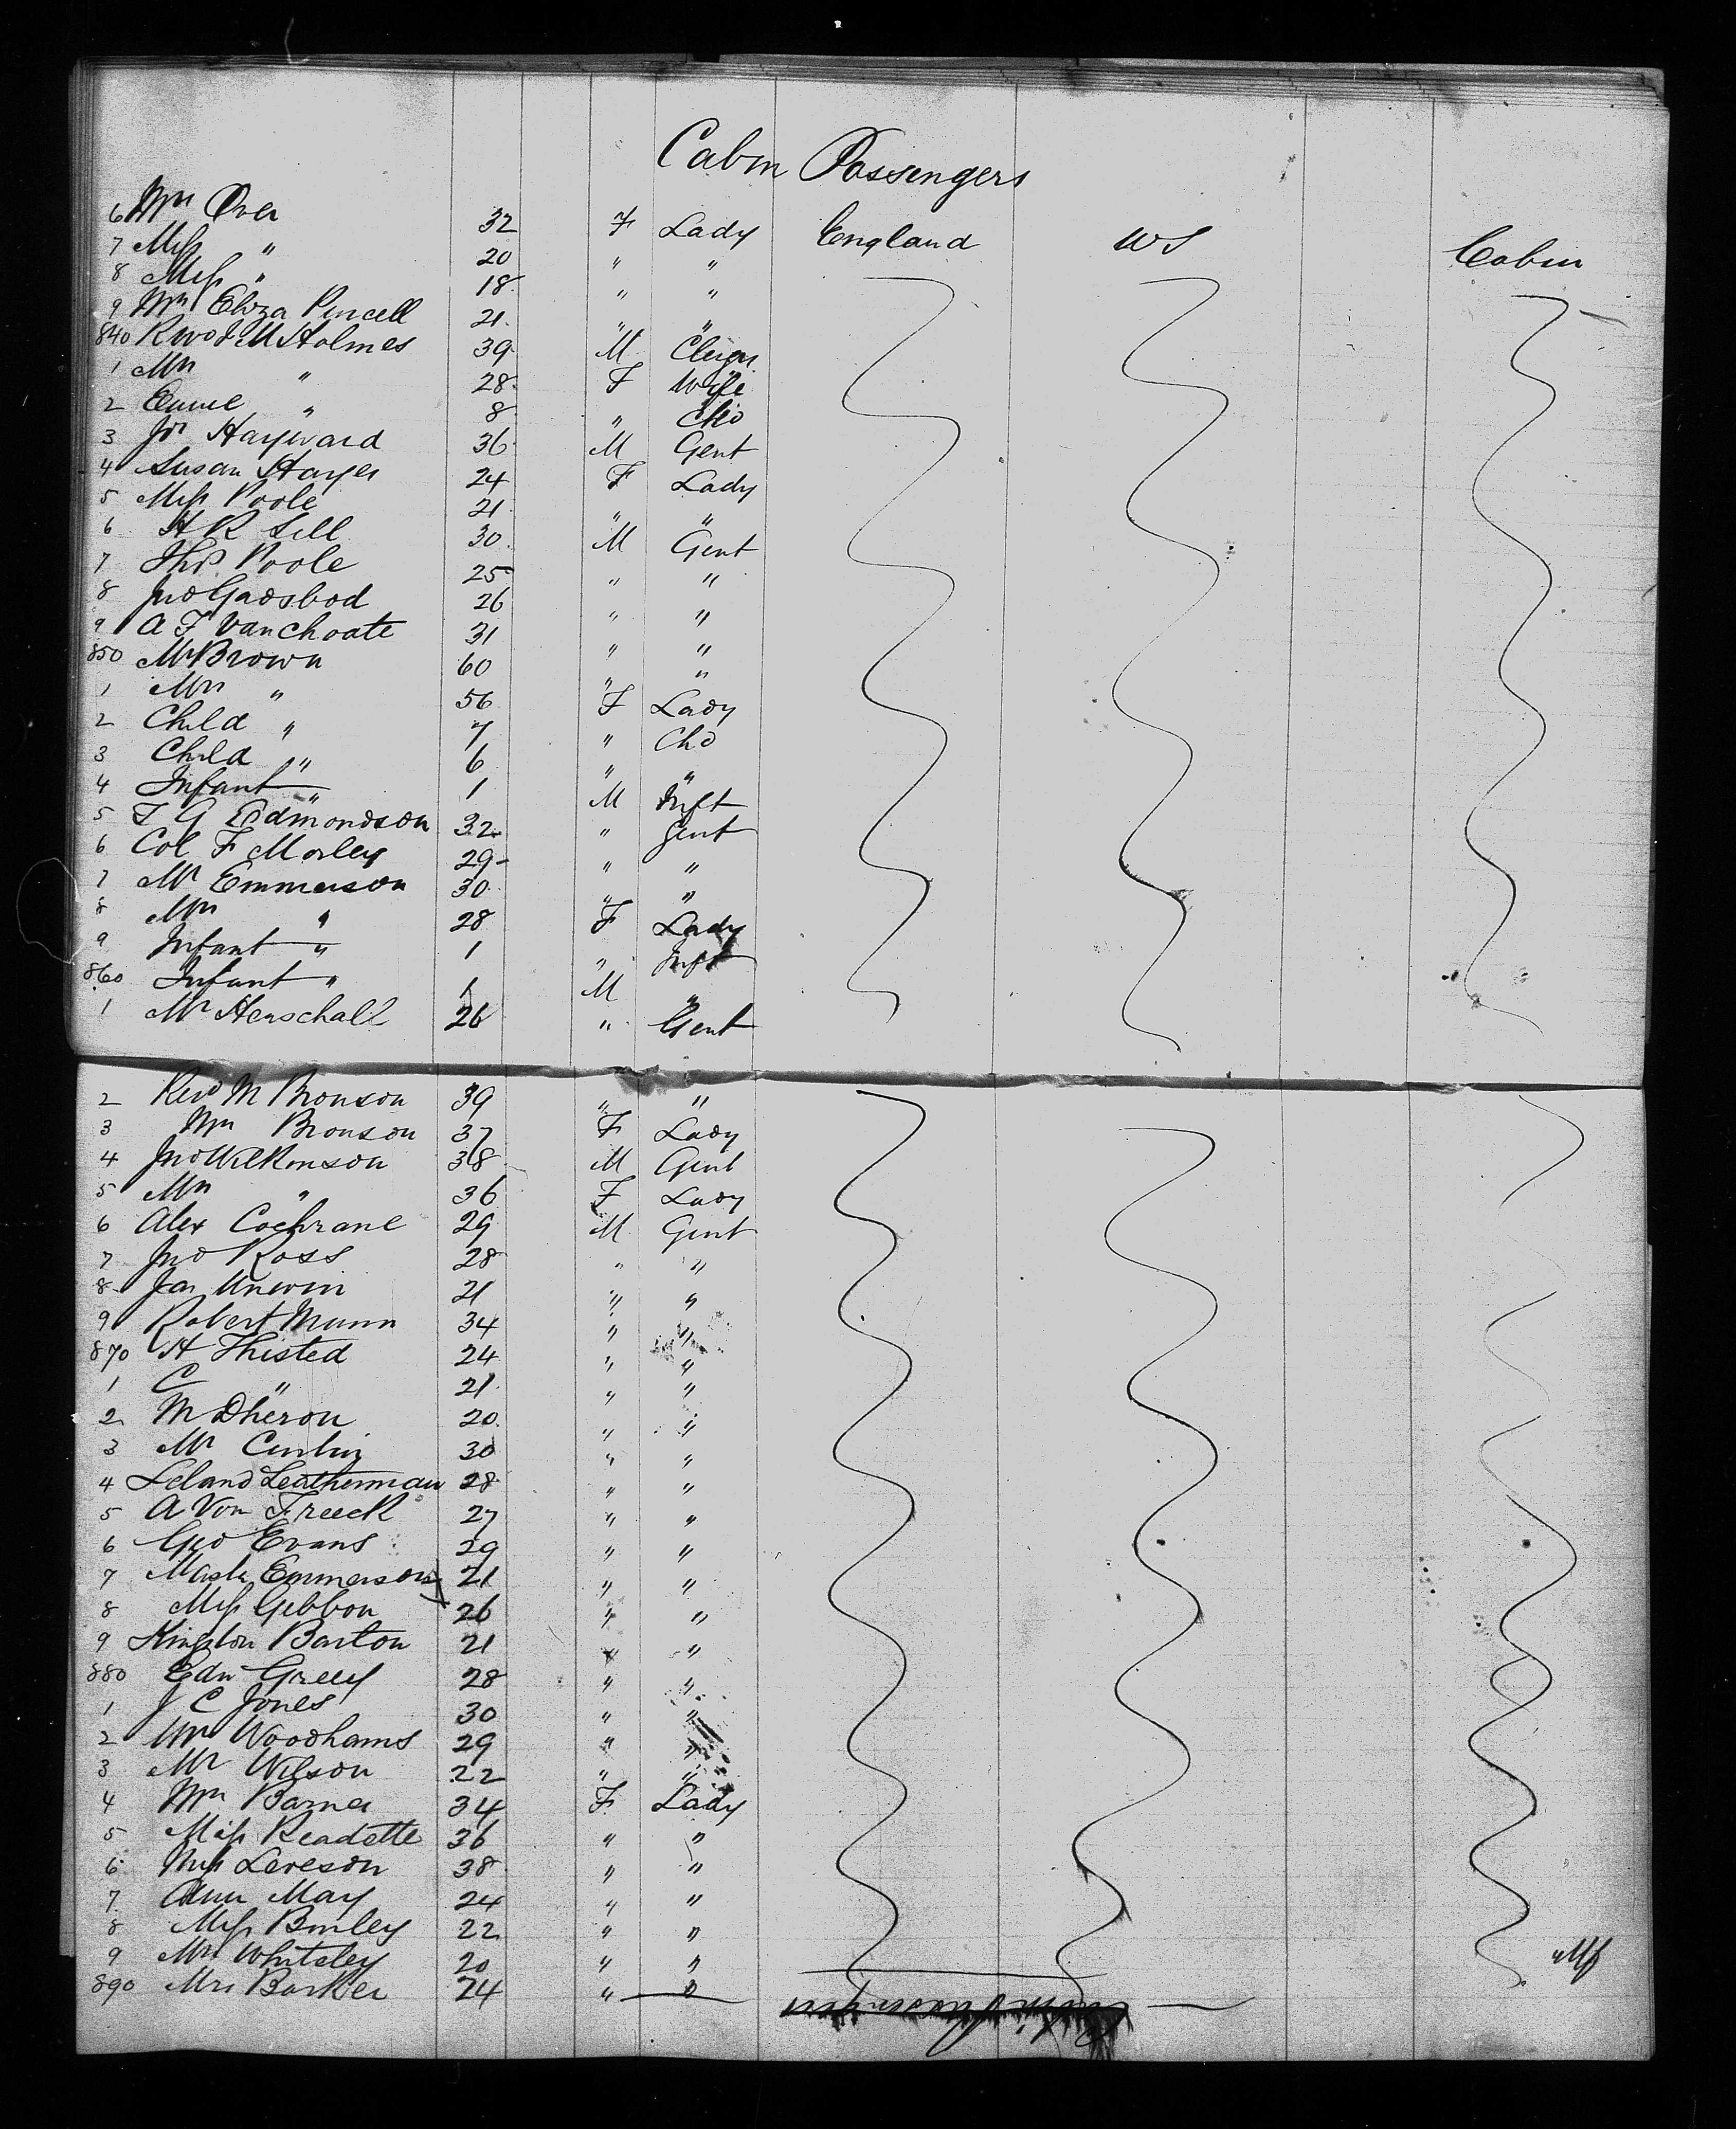 Cabin Passengers
6 Mrs Over 32 F Lady England US Cabin
7 Miss " 20 " "
8 Miss " 18 " "
9 Mrs Eliza Purcell 21 " "
840 Revd J M Holmes 39 M Clergn
1 Mrs " 28 F Wife
2 " 8 " Chd
3 Jos Hayward 36 M Gent
4 Susan Hayes 24 F Lady
5 Miss Poole 21 " "
6 H R Sill 30 M Gent
7 Thos Poole 25 " "
8 Jno Gadsbod 26 " "
9 A F Van Choate 31 " "
850 Mr Brown 60 " "
1 Mrs " 56 F Lady
2 Child " 7 " Chd
3 Child " 6 " "
4 Infant " 1 M Inft
5 T G Edmondson 32 " Gent
6 Col F Morley 29 " "
7 Mr Emmerson 30 " "
8 Mrs " 28 F Lady
9 Infant " 1 " Inft
860 Infant " 1 M "
1 Mr Henschall 26 " Gent
2 Revd M Bronson 39 " "
3 Mrs Bronson 37 F Lady
4 Jno Wilkinson 38 M Gent
5 Mrs " 36 F Lady
6 Alex Cochrane 29 M Gent
7 Jno Ross 28 " "
8 Jas Unwin 21 " "
9 Robert Munn 34 " "
870 H Thisted 24 " "
1 C " 21 " "
2 M Dheron 20 " "
3 Mr 30 " "
4 Leland Leatherman 28 " "
5 A Von Freeck 27 " "
6 Geo Evans 29 " "
7 Emmerson 21 " "
8 Miss Gibbon 26 " "
9 Kingston Barton 21 " "
880 Edw 28 " "
1 J C Jones 30 " "
2 Woodhams 29 " "
3 Mr Wilson 22 " "
4 Mrs Barnes 34 F Lady
5 Miss Readette 36 " "
6 Miss Leveson 38 " "
7 Ann May 24 " "
8 Miss Binley 22 " "
9 Mrs Whiteley 20 " "
890 Mrs Barker 24 " "